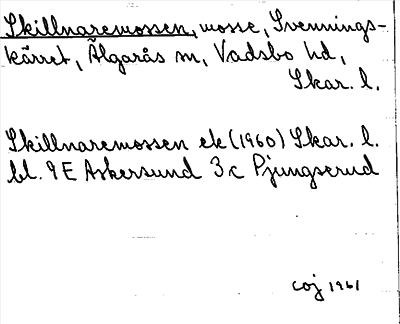 Skillnaremossen, mosse, Svennings-
kärret, Älgarås sn, Vadsbo hd,
Skar. l.
Skillnaremossen ek (1960) Skar. l.
bl. 9E Askersund 3c Pjungserud
coj 1961